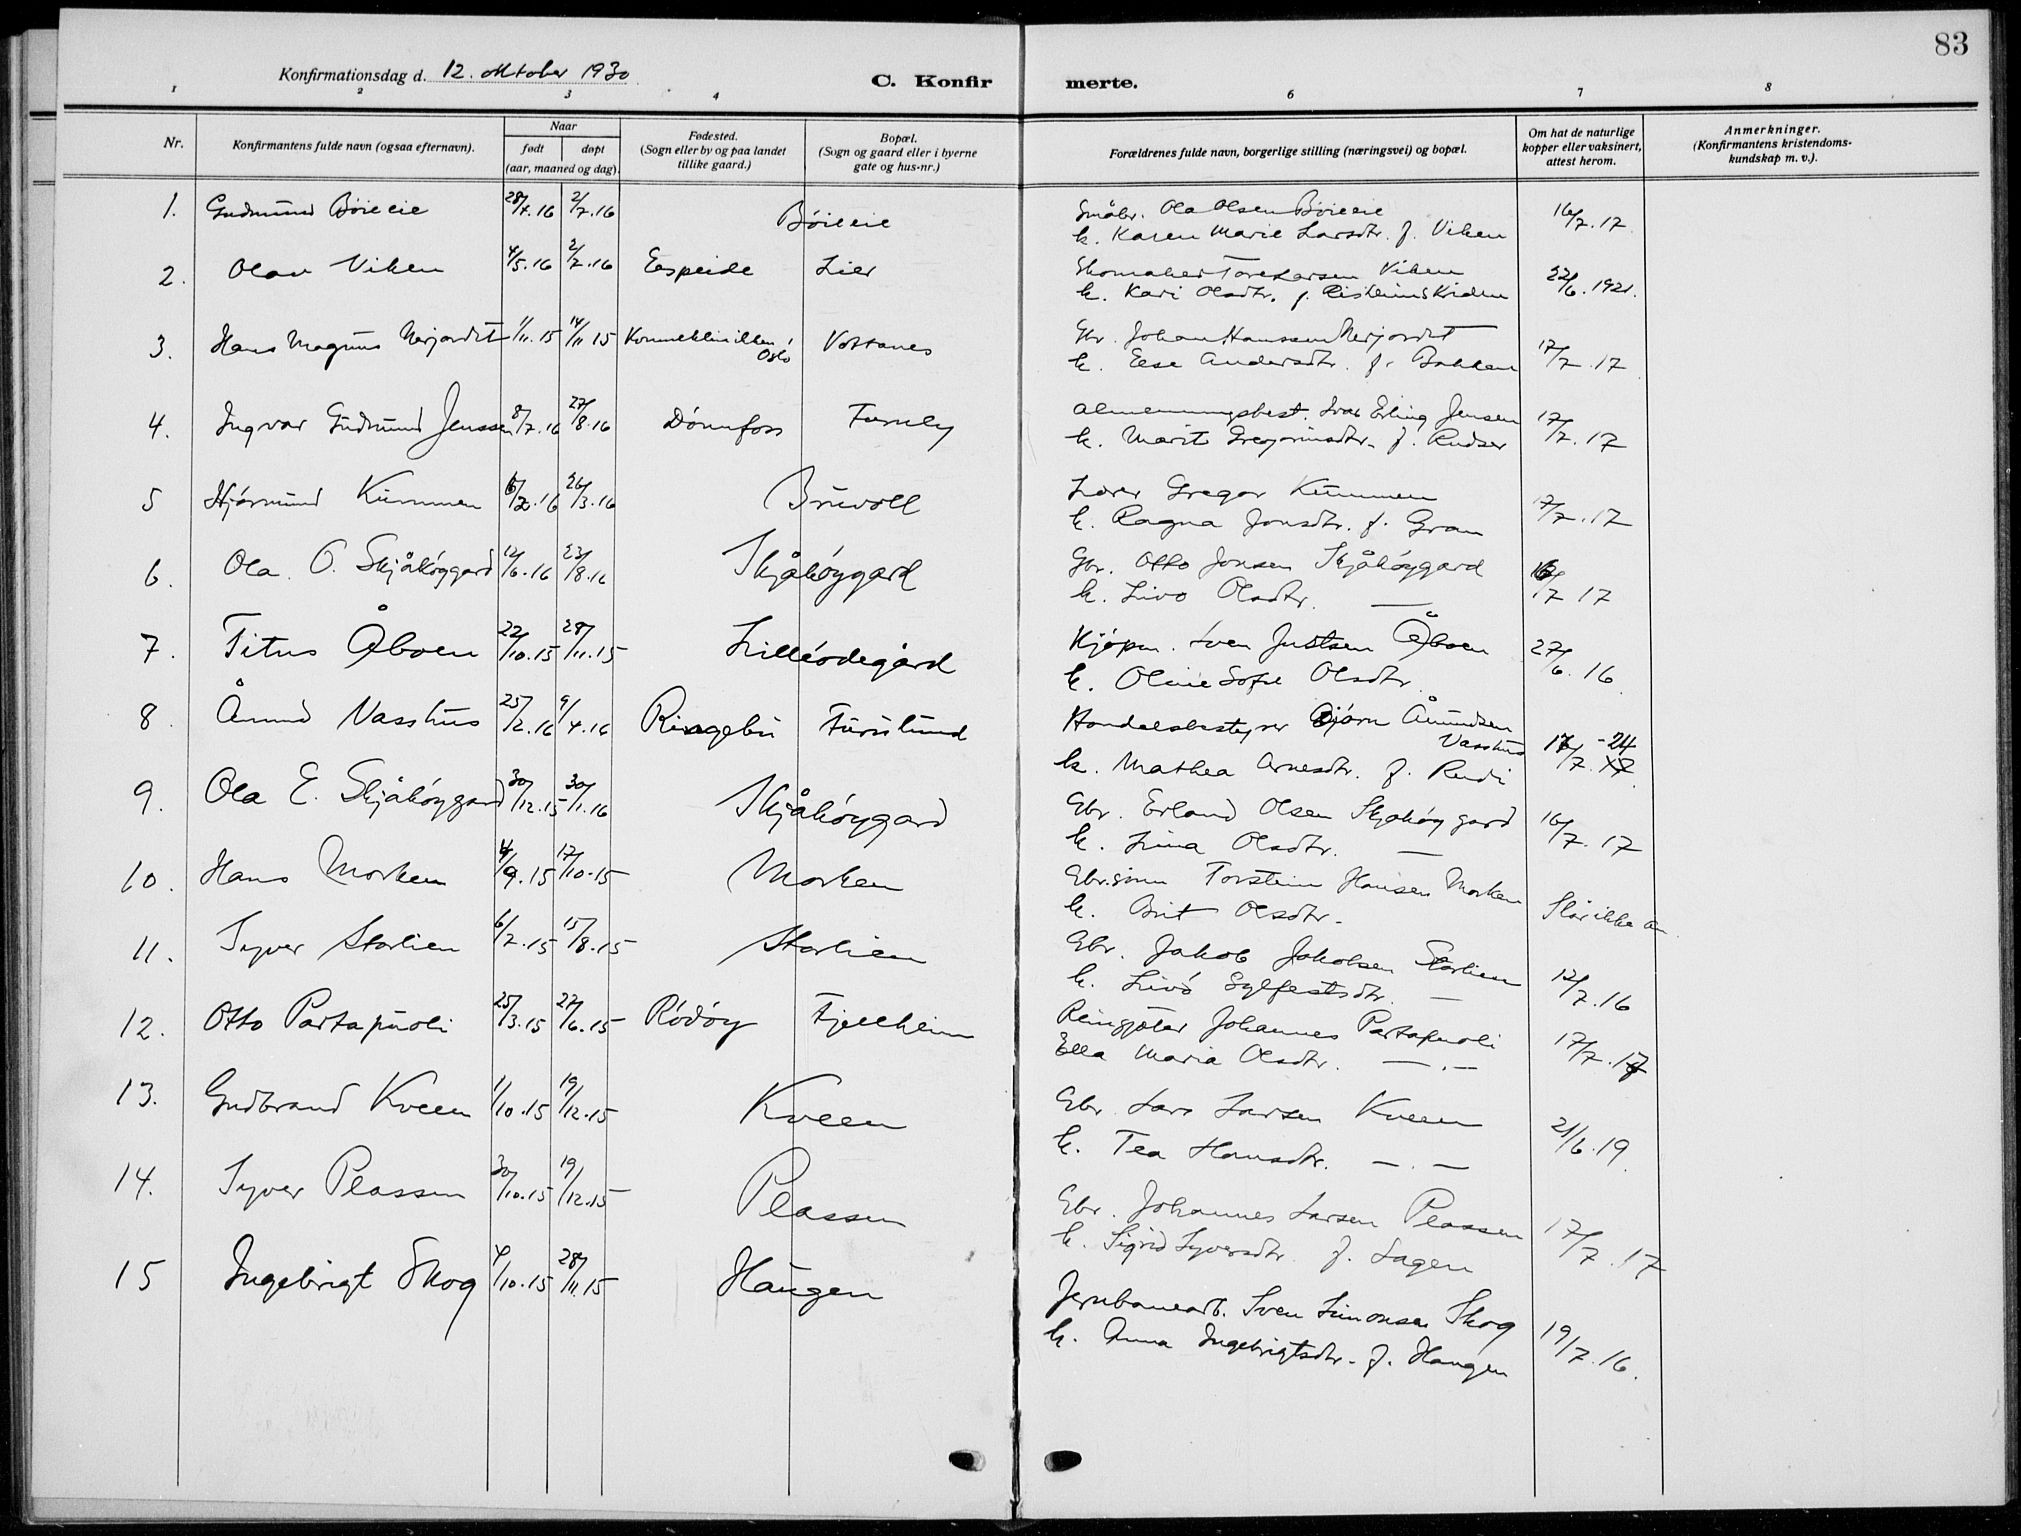 83
Konfirmationsdag d. 12. oktober 1930
C. Konfirmerte.
1 2 3 4 6 7 8
Nr.
Konfirmantens fulde navn (ogsaa efternavn).
Naar
født døpt
(aar, maaned og dag).
Fødested.
(Sogn eller by og paa landet
tillike gaard.)
Bopæl.
(Sogn og gaard eller i byerne
gate og hus-nr.)
Forældrenes fulde navn, borgerlige stilling (næringsvei) og bopæl.
Om hat de naturlige
kopper eller vaksinert,
attest herom.
Anmerkninger.
(Konfirmantens kristendoms-
kundskap m. v.).
1. Gudmund Böieeie 28/4.16 2/7.16 Böieeie Småbr. Ola Olsen Böieeie 16/7.17
h. Karen Marie Larsdtr. f. Viken
2. Olav Viken 4/5.16 2/7.16 Espeide Lier Skomaker Tore Larsen Viken 22/6.1921.
h. Kari Olsdtr. f.
3. Hans Magnus Nerjordet 1/11.15 14/11 15 Oslo Vottanes Gbr. Johan Hanssen Nerjordet 17/7.17
h. Else Andersdtr. f. Bakken
4. Ingvar Gudmund Jenssen 8/7.16 27/8.16 Dönnfoss Furuly Almenningsbest. Ivar Erling Jensen 17/7.17
h. Marit Gregoriusdtr. f. Rudser
5 Hjörmund Kummen 6/2.16 26/3.16 Bruvoll Lærer Gregor Kummen 17/7.17
h. Ragna Jonsdtr. f. Gran
6. Ola O. Skjåköygard 12/6.16 23/8.16 Skjåköygard Gbr. Otto Jonsen Skjåköygard 16/7 17
h. Livo Olsdtr. —
7. Titus Åboen 22/10.15 28/11.15 Lilleödegård Kjöpm. Sven Justsen Åboen 27/6.16
h. Oline Sofie Olsdtr.
8. Åmund Vasshus 25/2.16 9/4.16 Ringebu Furulund Handelsbestyrer Björn Åmundsen
Vasshus 17/7.-24
h. Mathea Arnesdtr. f. Rudi
9. Ola E. Skjåköygard 30/12.15 30/1.16 Skjåköygard Gbr. Erland Olsen Skjåköygard 16/7.17
h. Lina Olsdtr. —
10. Hans Morken 4/9.15 17/10.15 Morken Gbr.sönn Torstein Hansen Morken Slår ikke an.
h. Brit Olsdtr.
11. Syver Storlien 6/7.15 15/8.15 Storlien Gbr. Jakob Jakobsen Storlien 12/7.16
h. Livö Sylfestsdtr. —
12. Otto Partapuoli 25/3.15 27/6.15 Rödöy Fjellheim Reingjeter Johannes Partapuoli 17/7.17
Ella Maria Olsdtr. — . —
13. Gudbrand Kveen 1/10.15 19/12.15 Kveen Gbr. Lars Larsen Kveen 21/6.19.
h. Tea Hansdtr. — . —
14. Syver Plassen 30/10.15 19/12.15 Plassen Gbr. Johannes Larsen Plassen 17/7.17
h. Sigrid Syversdtr. f. Lagen
15 Ingebrigt Skog 4/10.15 28/11.15 Haugen Jernbanearb. Sven Simonsen Skog 19/7.16.
h. Anna Ingebrigtsdtr. f. Haugen